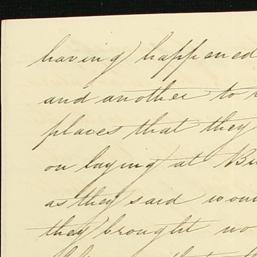 having happened
and another to
places that they
on laying at
as they said
they brought no